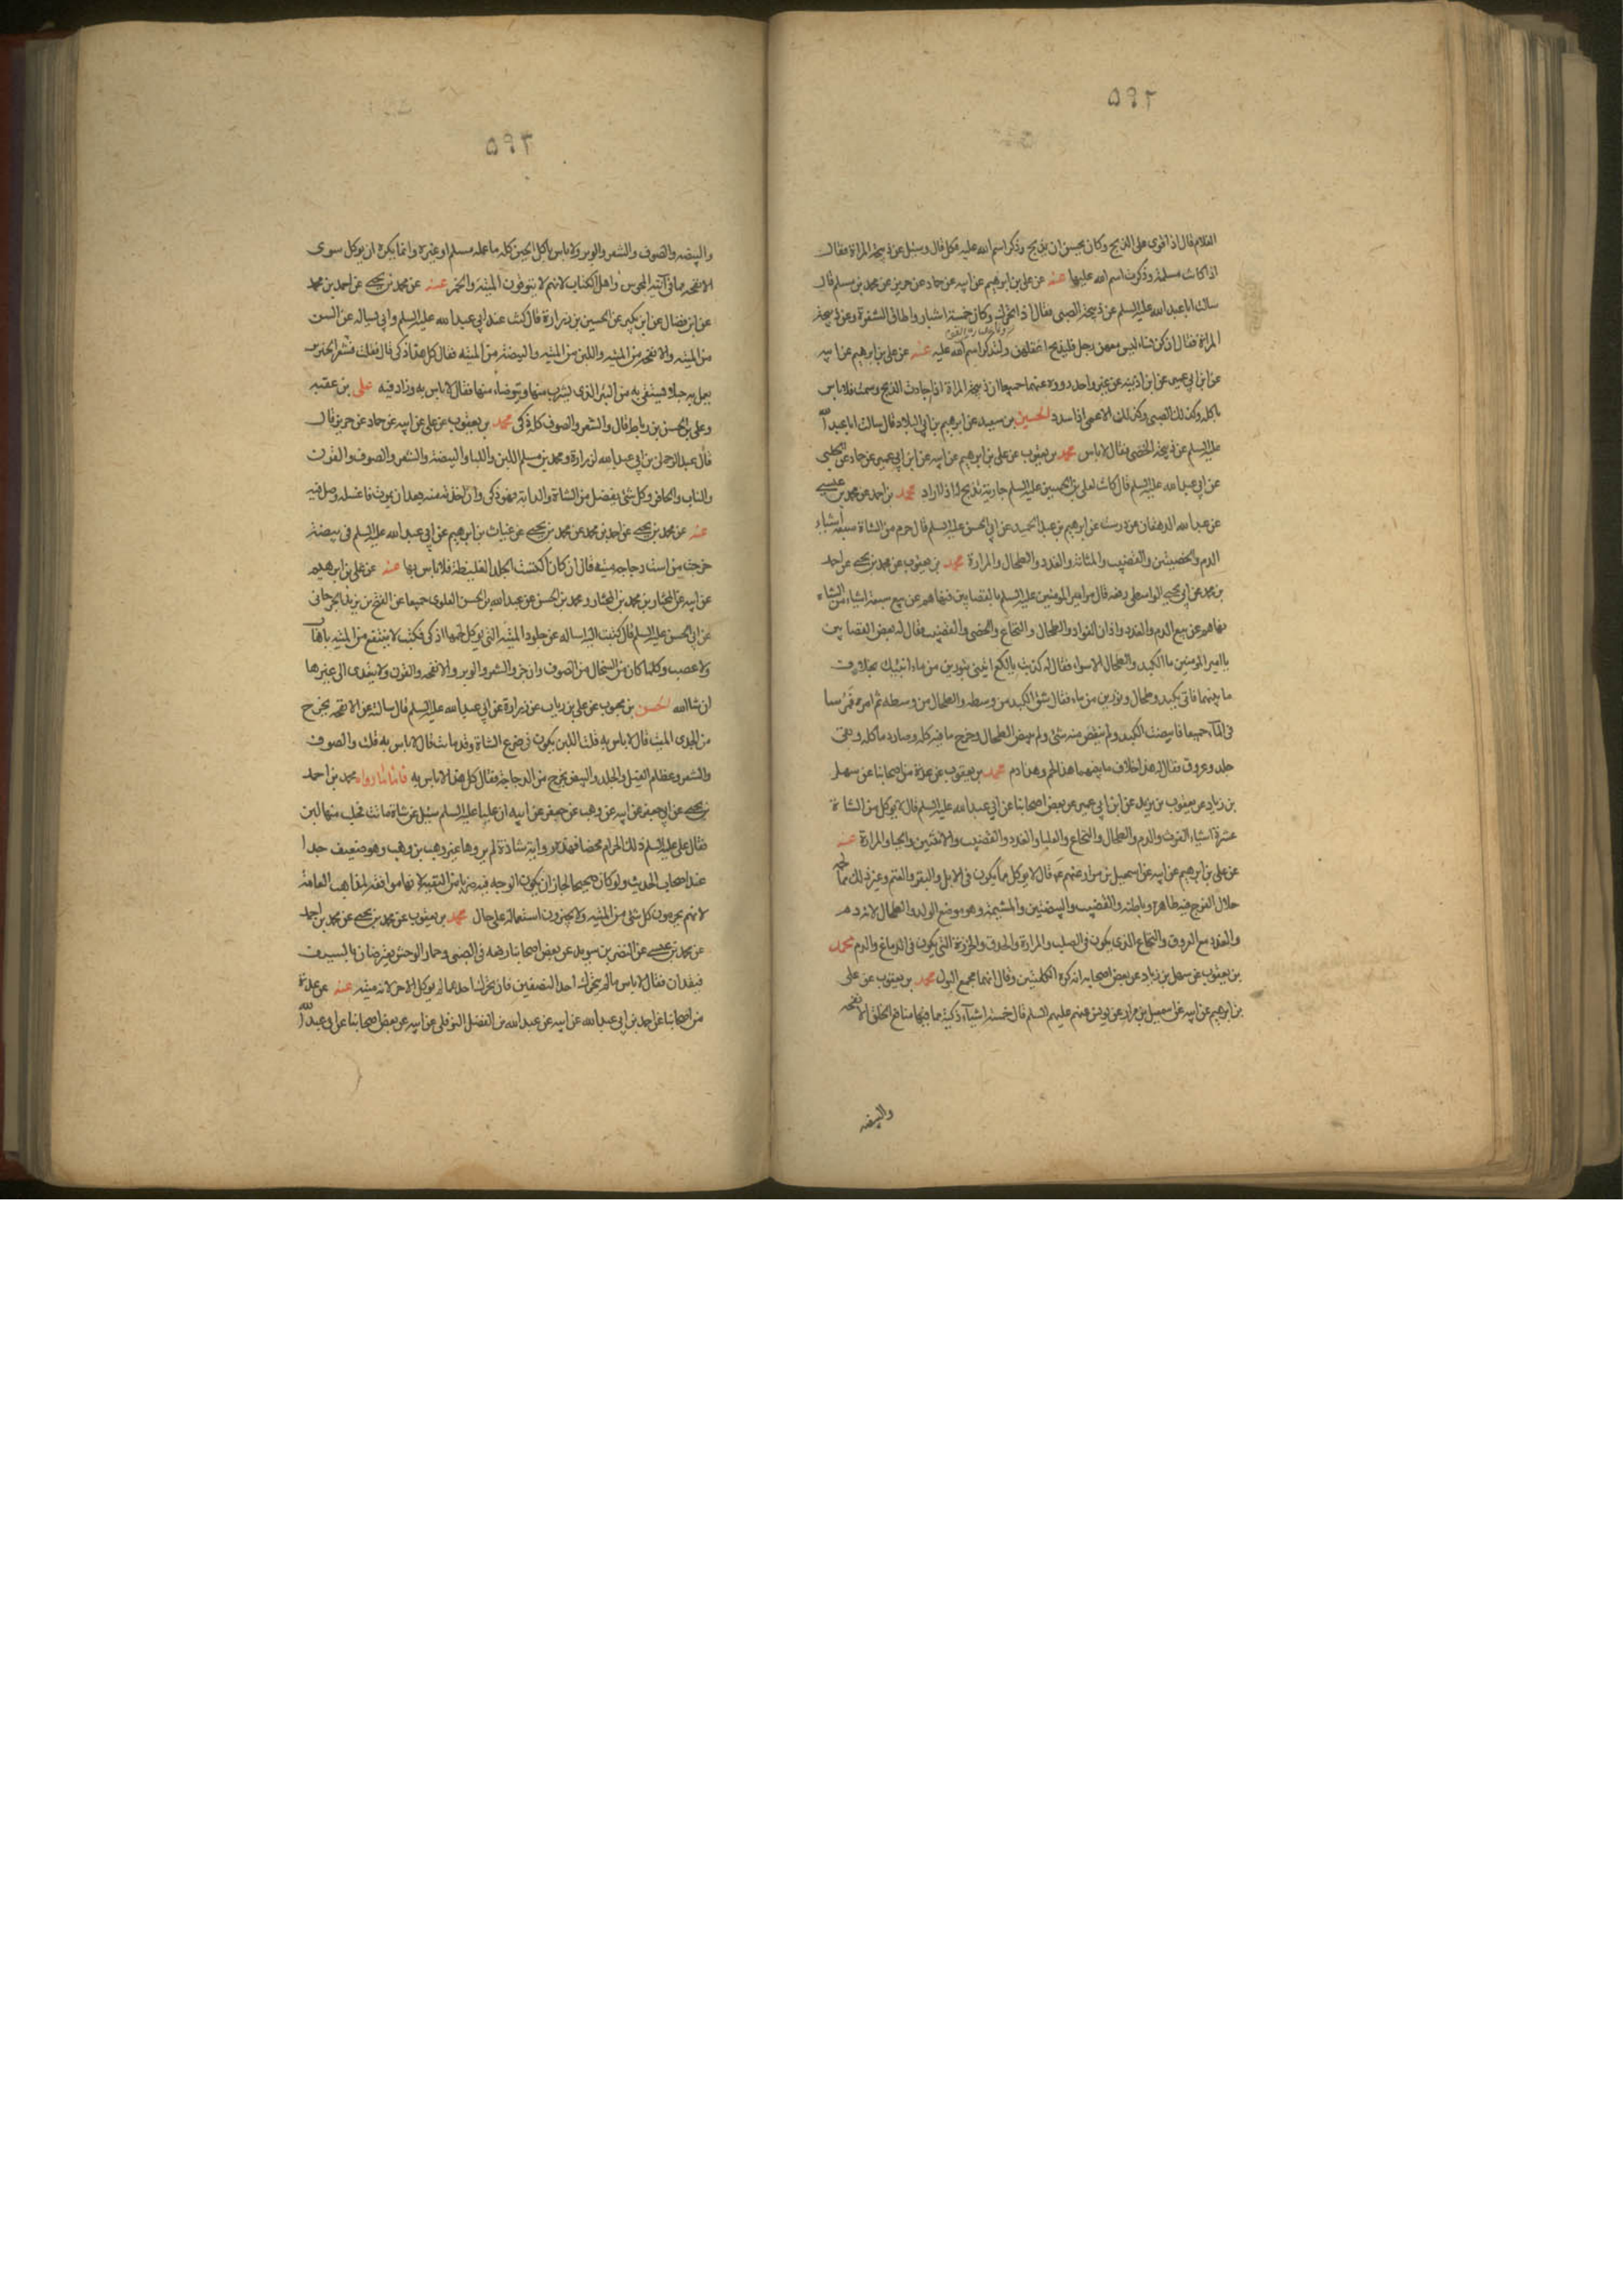 ٥٩٢
الغلام قال اذا قوى على الذبح وكان يحسن ان يذبح وذكر اسم الله عليه فكل قال وسئل عن ذبيحة المراة فقال
اذا كانت مسلمة وذكرت اسم الله عليها عنه عن على بن ابرهيم عن ابيه عن حماد عن حريز عن محمد بن مسلم قال
سالت ابا عبد الله عليه السلم عن ذبيحة الصبى فقال اذا تحرك وكان خمسة اشبار واطاق الشفرة وعن ذبيحة
المراة فقال ان كن نساء ليس معهن رجل فليذبح اعقلهن ولتذكر اسم الله عليه عنه عن على بن ابرهيم عن ابيه
عن ابن ابى عمير عن ابن اذينه عن غير واحد رووه عنهما جميعا ان ذبيحة المراة اذا اجادت الذبح وسمت فلا باس
باكله وكذلك الصبى وكذلك الاعمى اذا سدد الحسين بن سعيد عن ابرهيم بن ابى البلاد قال سالت ابا عبد الله
عليه السلم عن ذبيحة الخصى فقال لا باس محمد بن يعقوب عن على بن ابرهيم عن ابيه عن ابن ابى عمير عن حماد عن الحلبى
عن ابى عبد الله عليه السلم قال كانت لعلى بن الحسين عليه السلم جارية تذبح له اذا اراد محمد بن احمد عن محمد بن عيسى
عن عبد الله الدهقان عن درست عن ابرهيم بن عبد الحميد عن ابى الحسن عليه السلم قال حرم من الشاة سبعة اشياء
الدم والخصيتين والقضيب والمثانة والغدد والطحال والمرارة محمد بن يعقوب عن محمد بن يحيى عن احمد
بن محمد عن ابى يحيى الواسطى رفعه قال مر امير المومنين عليه السلم بالقصابين فنهاهم عن بيع سبعة اشياء من الشاء
نهاهم عن بيع الدم والغدد واذان الفواد والطحال والنخاع والخصى والقضيب فقال له بعض القصابين
يا امير المومنين ما الكبد والطحال الا سواء فقال له كذبت يا لكع ايتنى بتورين من ماء انبئك بخلاف
ما بينهما فاتى بكبد وطحال وتورين من ماء فقال شق الكبد من وسطه والطحال من وسطه ثم امر فمرسا
فى الماء جميعا فابيضت الكبد ولم ينقص منه شئ ولم يبيض الطحال وخرج ما فيه كله وصار دما كله وبقى
جلد وعروق فقال له هذا خلاف ما بينهما هذا لحم وهذا دم محمد بن يعقوب عن عدة من اصحابنا عن سهل
بن زياد عن يعقوب بن يزيد عن ابن ابى عمير عن بعض اصحابنا عن ابى عبد الله عليه السلم قال لا يوكل من الشاة
عشرة اشياء الفرث والدم والطحال والنخاع والعلبا والغدد والقضيب والانثيين والحيا والمرارة عنه
عن على بن ابرهيم عن ابيه عن اسمعيل بن مرار عنهم ع قال لا يوكل مما يكون فى الابل والبقر والغنم وغير ذلك مما لحمه
حلال الفرج فيه ظاهره وباطنه والقضيب والبيضتين والمشيمة وهو موضع الولد والطحال لانه دم
والغدد مع العروق والنخاع الذى يكون فى الصلب والمرارة والحدق والخرزة التى يكون فى الدماغ والدم محمد
بن يعقوب عن سهل بن زياد عن بعض اصحابه انه كره الكليتين وقال انهما مجمع البول محمد بن يعقوب عن على
بن ابرهيم عن ابيه عن اسمعيل بن مرار عن يونس عنهم عليهم السلم قال خمسة اشياء ذكية مما فيها منافع الخلق الانفحه
والبيضه
٥٩٣
والبيضه والصوف والشعر والوبر ولا باس باكل الجبن كله ما عمله مسلم او غيره وانما يكره ان يوكل سوى
الانفحه مما فى آنية المجوس واهل الكتاب لانهم لا يتوقون الميتة والخمر عنه عن محمد بن يحيى عن احمد بن محمد
عن ابن فضال عن ابن بكير عن الحسين بن زرارة قال كنت عند ابى عبد الله عليه السلم وابى يساله عن السن
من الميته والانفحه من الميته واللبن من الميته والبيضة من الميته فقال كل هذا ذكى قال فقلت فشعر الخنزير
يعمل به حبلا فيستقى به من البئر الذى يشرب منها ويتوضا منها فقال لا باس به وزاد فيه على بن عقبه
وعلى بن الحسن بن رباط قال والشعر والصوف كله ذكى محمد بن يعقوب عن على عن ابيه عن حماد عن حريز قال
قال عبد الرحمن بن ابى عبد الله لزرارة ومحمد بن مسلم اللبن واللبا والبيضة والشعر والصوف والقرن
والناب والحافر وكل شئ يفصل من الشاة والدابة فهو ذكى وان اخذته منه بعد ان يموت فاغسله وصل فيه
عنه عن محمد بن يحيى عن احمد بن محمد عن محمد بن يحيى عن غياث بن ابرهيم عن ابى عبد الله عليه السلم فى بيضة
خرجت من است دجاجه ميته فقال ان كان اكتست الجلد الغليظة فلا باس بها عنه عن على بن ابرهيم
عن ابيه عن المختار بن محمد بن المختار ومحمد بن الحسن عن عبد الله بن الحسن العلوى جميعا عن الفتح بن يزيد الجرجانى
عن ابى الحسن عليه السلم قال كتبت اليه اساله عن جلود الميتة التى يوكل لحمها اذكى فكتب لا ينتفع من الميته باهاب
ولا عصب وكلما كان من السخال من الصوف وان جز والشعر والوبر والانفحه والقرن ولا يتعدى الى غيرها
ان شا الله الحسن بن محبوب عن على بن رياب عن زرارة عن ابى عبد الله عليه السلم قال سالته عن الانفحه يخرج
من الجدى الميت قال لا باس به قلت اللبن يكون فى ضرع الشاة وقد ماتت قال لا باس به قلت والصوف
والشعر وعظام الفيل والجلد والبيض يخرج من الدجاجة فقال كل هذا لا باس به فاما ما رواه محمد بن احمد
بن يحيى عن ابى جعفر عن ابيه عن وهب عن جعفر عن ابيه ان عليا عليه السلم سئل عن شاة ماتت فحلب منها لبن
فقال على عليه السلم ذلك الحرام محضا فهذه رواية شاذة لم يروها غير وهب بن وهب وهو ضعيف جدا
عند اصحاب الحديث ولو كان صحيحا لجاز ان يكون الوجه فيه ضربا من التقيه لانها موافقه لمذاهب العامة
لانهم يحرمون كل شئ من الميته ولا يجيزون استعماله على حال محمد بن يعقوب عن محمد بن يحيى عن محمد بن احمد
عن محمد بن عيسى عن النضر بن سويد عن بعض اصحابنا رفعه فى الظبى وحمار الوحش يعترضان بالسيف
فيقدان فقال لا باس ما لم يتحرك احد النصفين فان تحرك احدهما لم يوكل الاخر لانه ميته عنه عن عدة
من اصحابنا عن احمد بن ابى عبد الله عن ابيه عن عبد الله بن الفضل النوفلى عن ابيه عن بعض اصحابنا عن ابى عبد الله